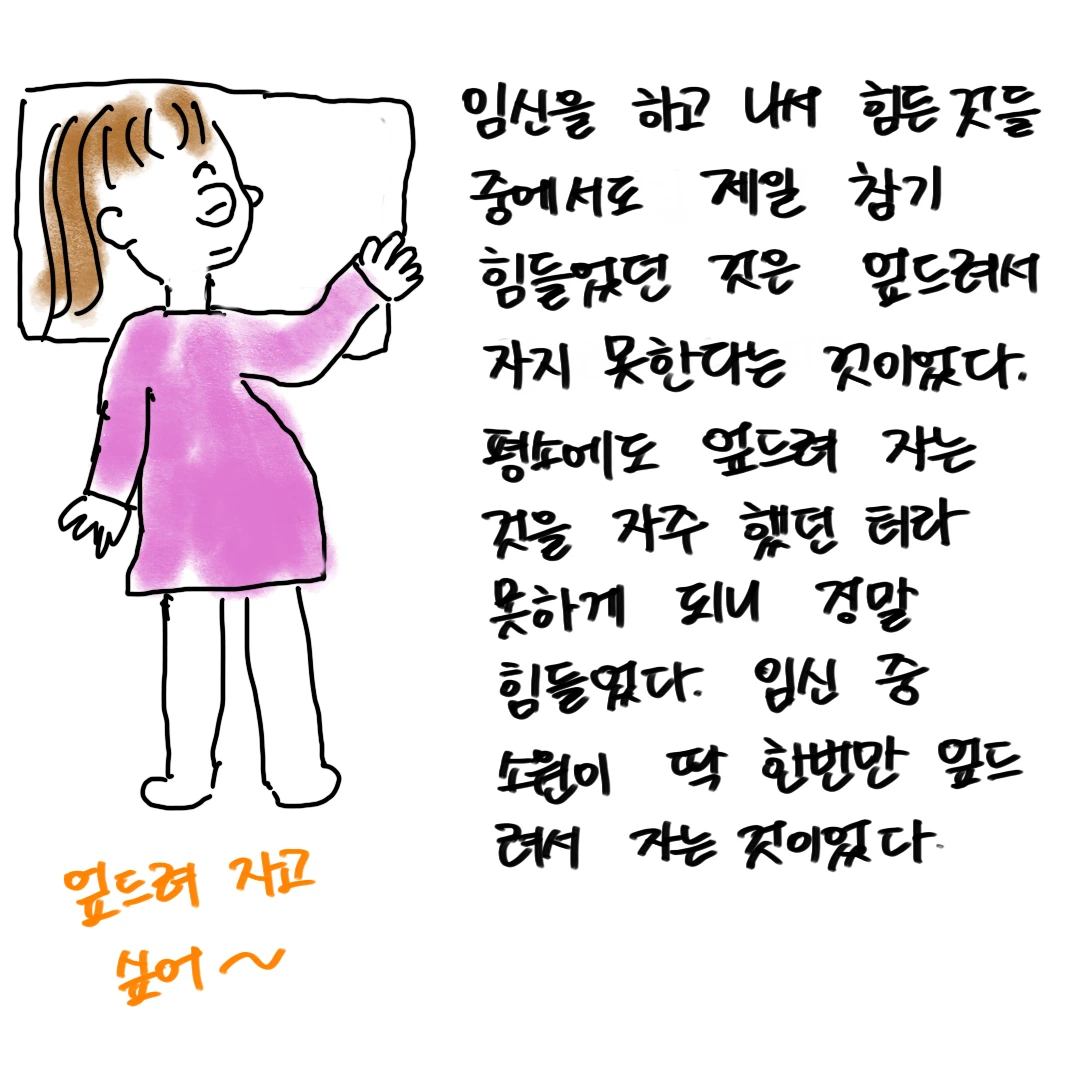 임신을 하고 나서 힘든 것들
중에서도 제일 참기
힘들었던 것은 엎드려서
자지 못한다는 것이었다.
평소에도 엎드려 자는
것을 자주 했던 터라
못하게 되니 정말
힘들었다. 임신 중
소원이 딱 한번만 엎드
려서 자는 것이었다.
엎드려 자고
싶어~